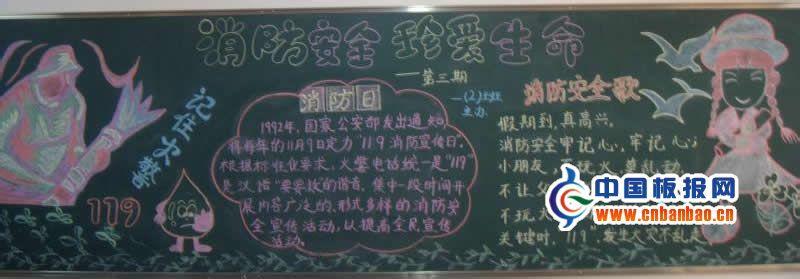 消防安全 珍爱生命
——第三期
(2)班
主办
记住火警
119
消防日
1992年,国家公安部发出通知,
将每年的11月9日定为"119消防宣传日。
根据标准化要求,火警电话统一是"119"
是汉语"要要救的谐音,集中一段时间开
展内容广泛的、形式多样的消防安
全宣传活动,以提高全民宣传
活动。
消防安全歌
假期到,真高兴,
消防安全牢记心,牢记心;
小朋友,
莫乱动,
不让
不玩火
关键时,119,发生火灾不乱
中国板报网
www.cnbanbao.cn